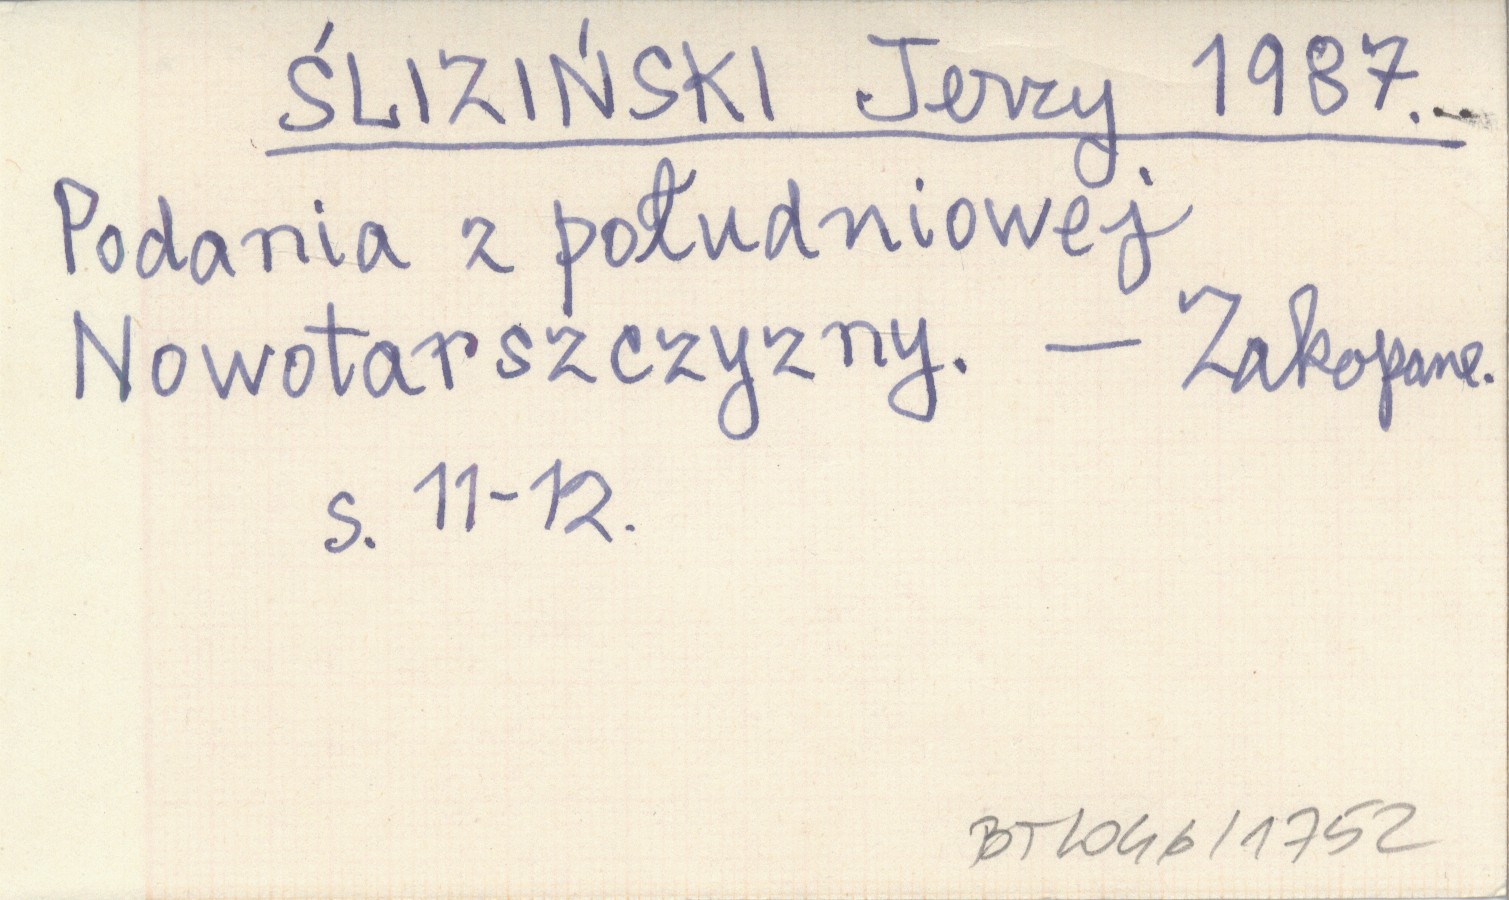 ŚLIZIŃSKI Jerzy 1987.
Podania z południowej
Nowotarszczyzny. — Zakopane.
s. 11-12.